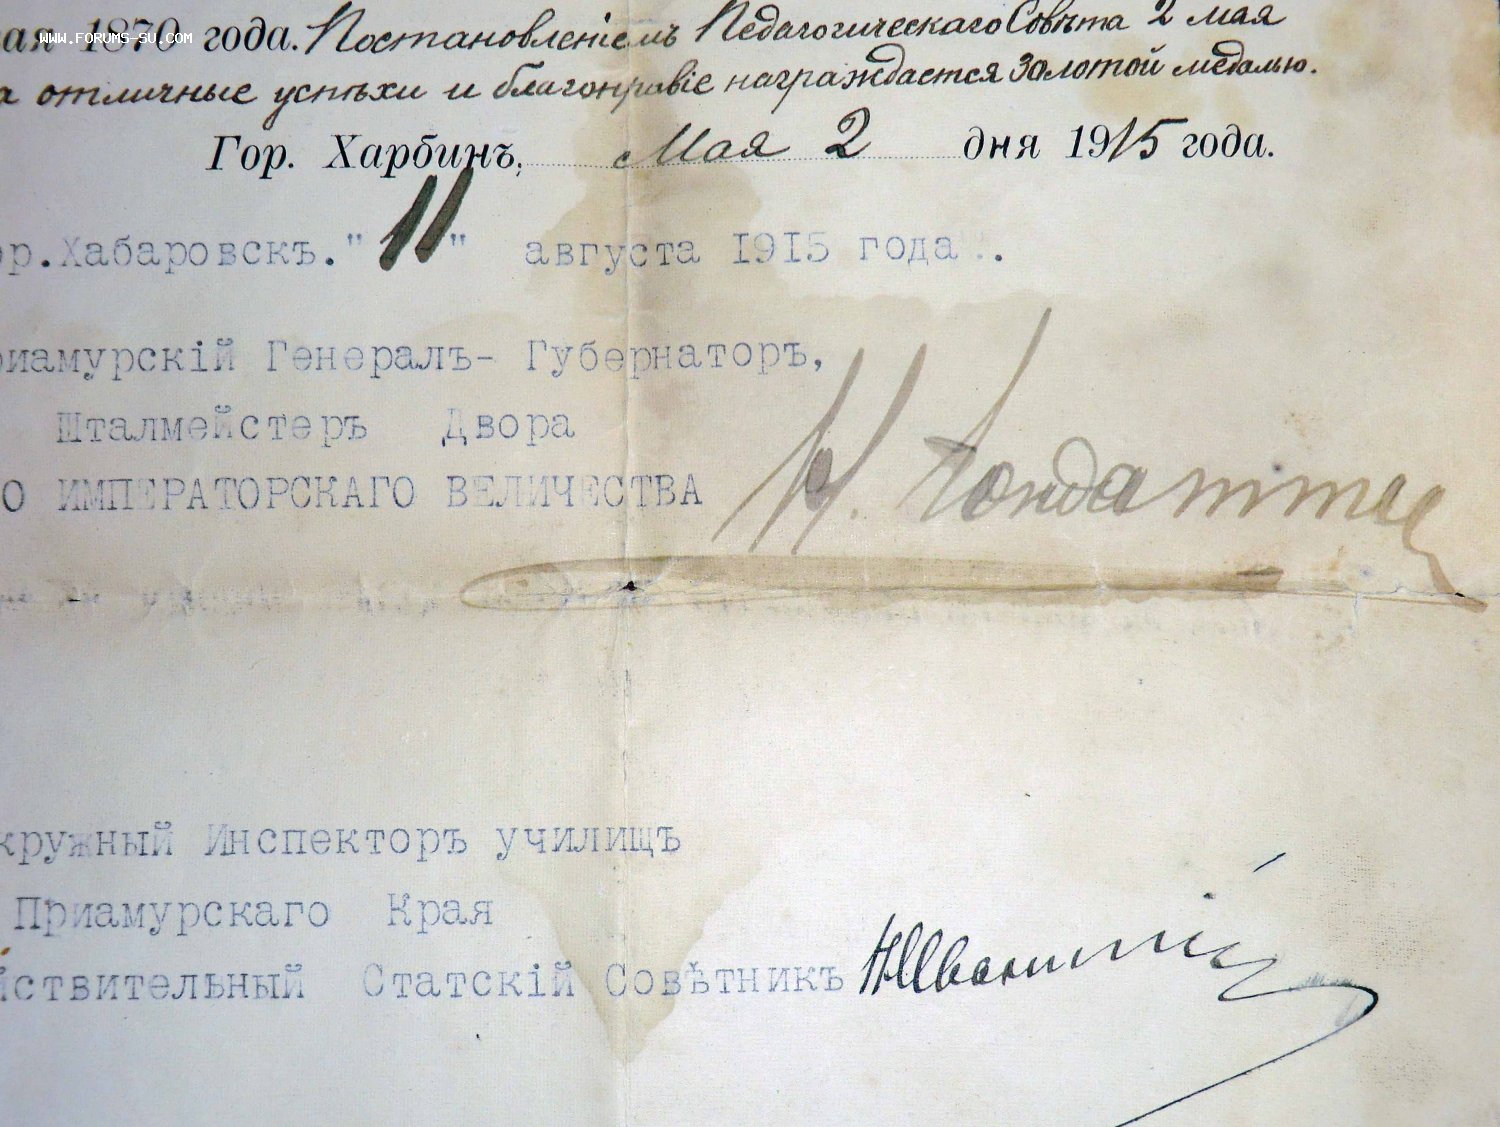 WWW.FORUMS-SU.COM
мая 1870 года. Постановленіемъ Педагогическаго Совѣта 2 мая
за отличные успѣхи и благонравіе награждается золотой медалью.
Гор. Харбинъ, Мая 2 дня 1915 года.
ор. Хабаровскъ. "11" августа 1915 года.
риамурскій Генералъ- Губернаторъ,
Шталмейстеръ Двора
О ИМПЕРАТОРСКАГО ВЕЛИЧЕСТВА
Н. Гондатти
кружный Инспекторъ училищъ
Приамурскаго Края
йствительный Статскій Совѣтникъ